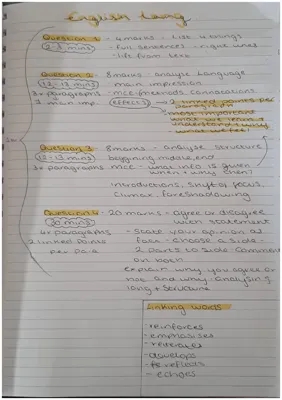 English Lang
Question 1 - 4 marks - list 4 things
- full sentences - right lines
- lift from text
Question 2 8 marks - analyse language
12-13 mins - main impression
3x paragraphs MCC (methods connotations
1 main imp. EFFECTS) → 2 linked points per
paragraph
most important
what we learn
understand
what we feel
Question 3 - 8 marks - analyse structure
12-13 mins beginning middle end
3x paragraphs MCC - what info is given
when + why then!
introductions, shift of focus,
Climax, foreshadowing
Question 4 - 20 marks - agree or disagree
30 mins with statement
4x paragraphs - State your opinion
2 linked points - choose a side
per para - 2 parts to
on both
- explain why you agree or
not and why - analysing
lang + structure
Linking words
- reinforces
- emphasises
- reiterates
- develops
- reflects
- echoes